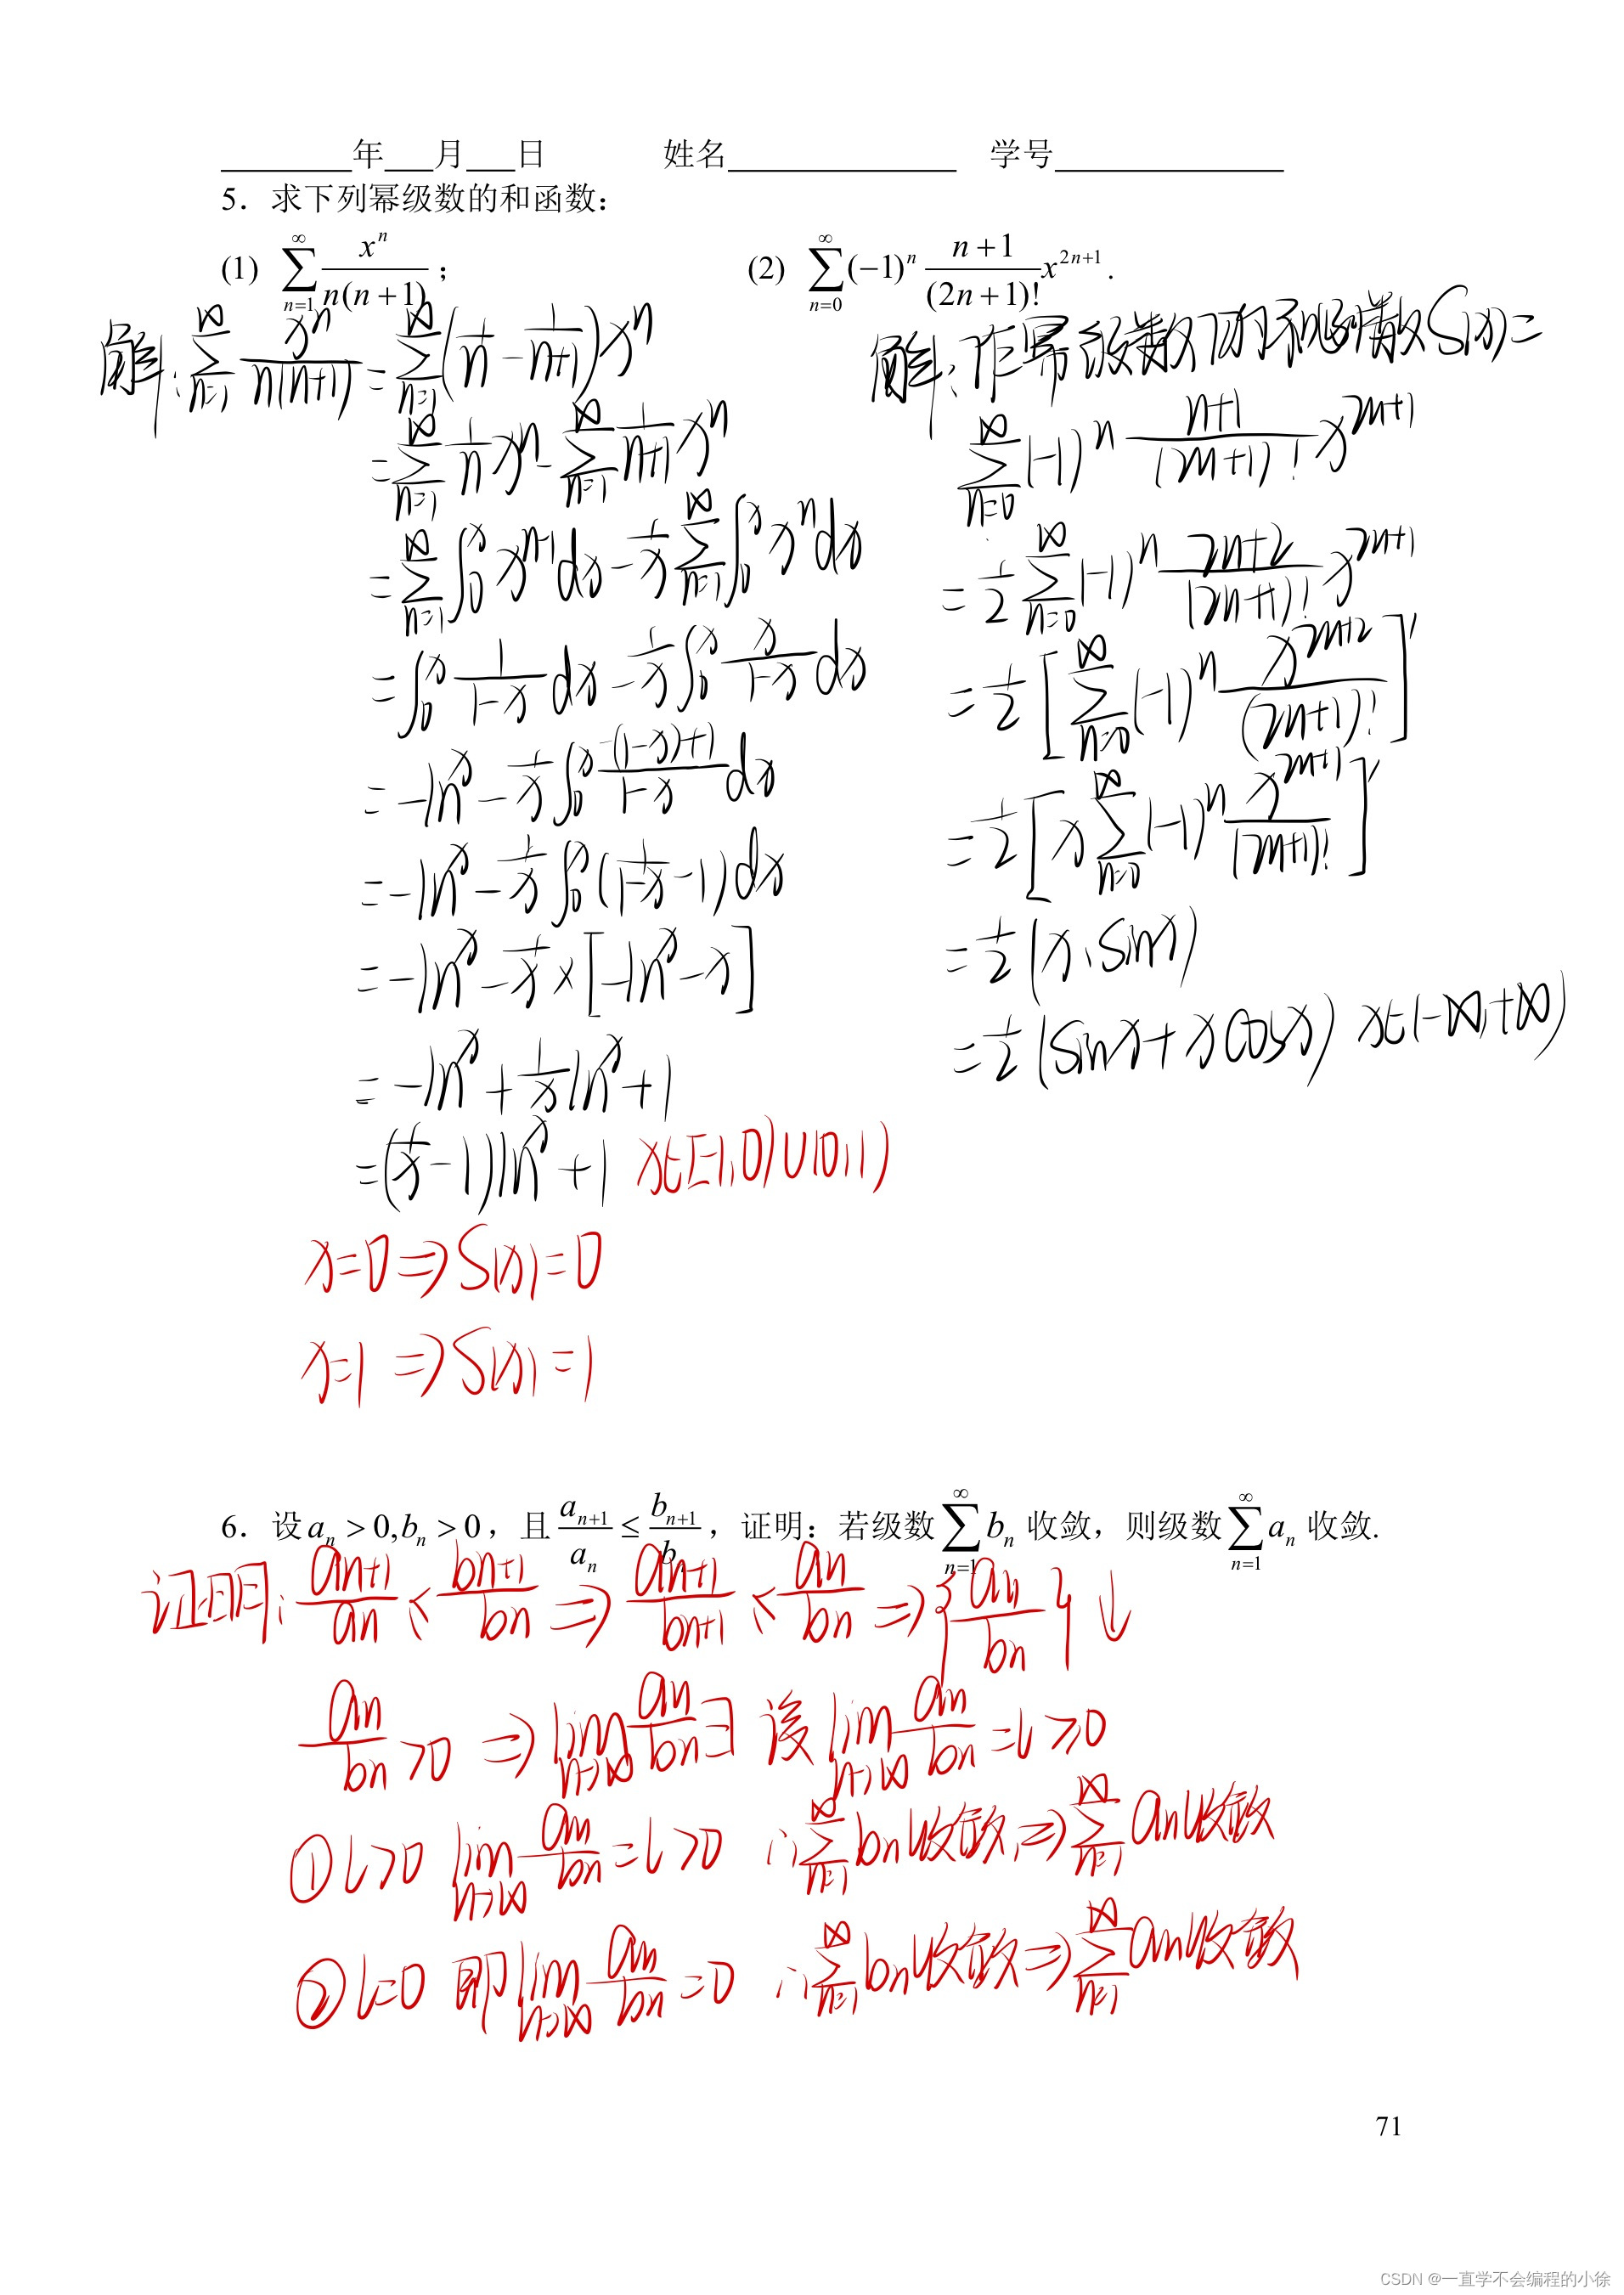 年 月 日 姓名 学号
5．求下列幂级数的和函数：
(1) ∑_{n=1}^{∞} x^n/(n(n+1))； (2) ∑_{n=0}^{∞} (-1)^n (n+1)/(2n+1)! x^{2n+1}.
解：∑_{n=1}^{∞} x^n/(n(n+1)) = ∑_{n=1}^{∞} (1/n - 1/(n+1)) x^n
= ∑_{n=1}^{∞} 1/n x^n - ∑_{n=1}^{∞} 1/(n+1) x^n
= ∑_{n=1}^{∞} ∫_0^x x^{n-1} dx - 1/x ∑_{n=1}^{∞} ∫_0^x x^n dx
= ∫_0^x 1/(1-x) dx - 1/x ∫_0^x x/(1-x) dx
= -ln^x - 1/x ∫_0^x (-(1-x)+1)/(1-x) dx
= -ln^x - 1/x ∫_0^x (1/(1-x) - 1) dx
= -ln^x - 1/x × [-ln^x - x]
= -ln^x + 1/x ln^x + 1
= (1/x - 1) ln^x + 1 x∈[-1,0)∪(0,1)
x=0 ⇒ S(x)=0
x=1 ⇒ S(x)=1
解：幂级数的和函数S(x)=
∑_{n=0}^{∞} (-1)^n (n+1)/(2n+1)! x^{2n+1}
= 1/2 ∑_{n=0}^{∞} (-1)^n (2n+2)/(2n+1)! x^{2n+1}
= 1/2 [∑_{n=0}^{∞} (-1)^n x^{2n+2}/(2n+1)!]'
= 1/2 [x ∑_{n=0}^{∞} (-1)^n x^{2n+1}/(2n+1)!]'
= 1/2 (x·sinx)
= 1/2 (sinx + xcosx) x∈(-∞,+∞)
6．设 a_n > 0, b_n > 0，且 a_{n+1}/a_n ≤ b_{n+1}/b_n，证明：若级数 ∑_{n=1}^{∞} b_n 收敛，则级数 ∑_{n=1}^{∞} a_n 收敛.
证明：a_{n+1}/a_n ≤ b_{n+1}/b_n ⇒ a_{n+1}/b_{n+1} ≤ a_n/b_n ⇒ {a_n/b_n} ↓
a_n/b_n > 0 ⇒ lim_{n→∞} a_n/b_n ∃ 设 lim_{n→∞} a_n/b_n = l ≥ 0
① l>0 lim_{n→∞} a_n/b_n = l > 0 ∵∑_{n=1}^{∞} b_n 收敛, ⇒ ∑_{n=1}^{∞} a_n 收敛
② l=0 即 lim_{n→∞} a_n/b_n = 0 ∵∑_{n=1}^{∞} b_n 收敛 ⇒ ∑_{n=1}^{∞} a_n 收敛
71
CSDN @一直学不会编程的小徐